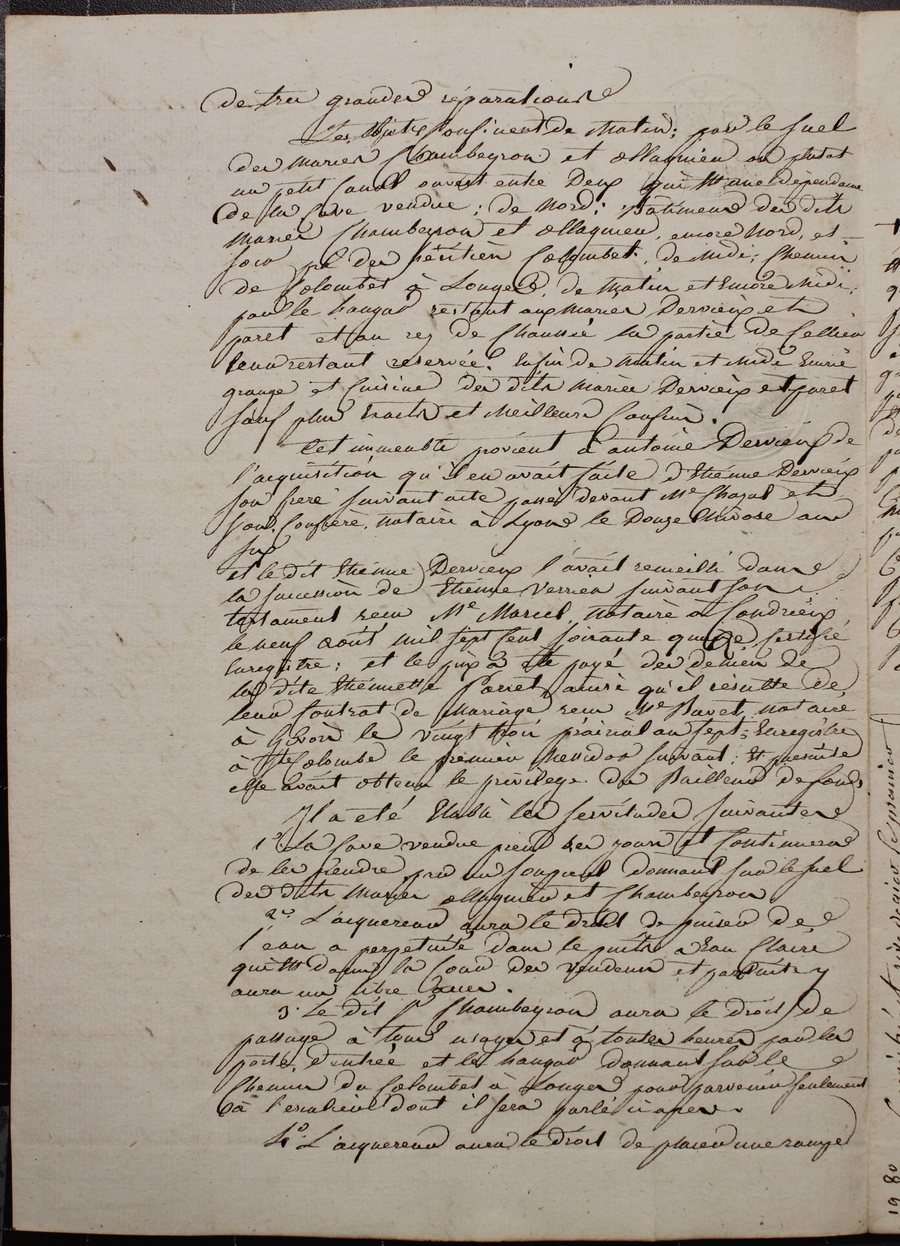 de tres grandes réparations
Les objets Confinent de Matin; par le Suel
des Mariés Chambeyron et ollagnier ou plutot
un petit Canal ouvert entre Deux qui est une dépendance
de la Cave vendue; de Nord; Batiment des dits
Mariés Chambeyron et ollagnier, encore Nord, et
soir pré des héritiers Colombet. de Midi; Chemin
de Colombet à Longes, de Matin et Encore Midi;
par le hangar restant aux Mariés Dervieux et
paret et au rez de Chaussée la partie de Cellier
leur restant reservée. Enfin de Matin et Midi Ecurie
grange et Cuisine des dits Mariés Dervieux et paret
sauf plus Exacts et Meilleurs Confins.
Cet immeuble provient d'antoine Dervieux de
l'acquisition qu'il en avait faite d'Etienne Dervieux
son frere suivant acte passé devant Me Chazal et
son Confrère, notaire à Lyon le Douze Nivose an
Six
et le dit Etienne Dervieux l'avait recueilli dans
la succession de Etienne Verrier suivant son
testament recu Me Marcel, notaire à Condrieux
le neuf août mil sept cent soixante quinze
Enregistré; et le prix a été payé des deniers de
la dite Etiennette Parret ainsi qu'il résulte de
leur Contrat de Mariage recu Me Bavet, notaire
à Givors le vingt trois prairial an sept, Enregistré
à Ste Colombe le premier Messidor suivant;
elle avait obtenu le privilege du Bailleur de fonds
Il a eté Etabli les servitudes suivantes
1° La Cave vendue prend ses jours et Continuera
de les prendre par un Soupirail donnant sur le Suel
des dits Mariés ollagnier et Chambeyron
2° L'acquereur aura le droit de puiser de
l'eau a perpétuité dans le puits a Eau Claire
qui est dans la Cour des vendeurs et par suite y
aura un libre accès.
3° Le dit Sr Chambeyron aura le droit de
passage à tous usages et à toutes heures par la
porte d'entrée et le hangar donnant sur le
Chemin du Colombet à Longes pour parvenir seulement
à l'escalier dont il sera parlé ci apres.
4° L'acquereur aura le droit de placer une rampe
19 80